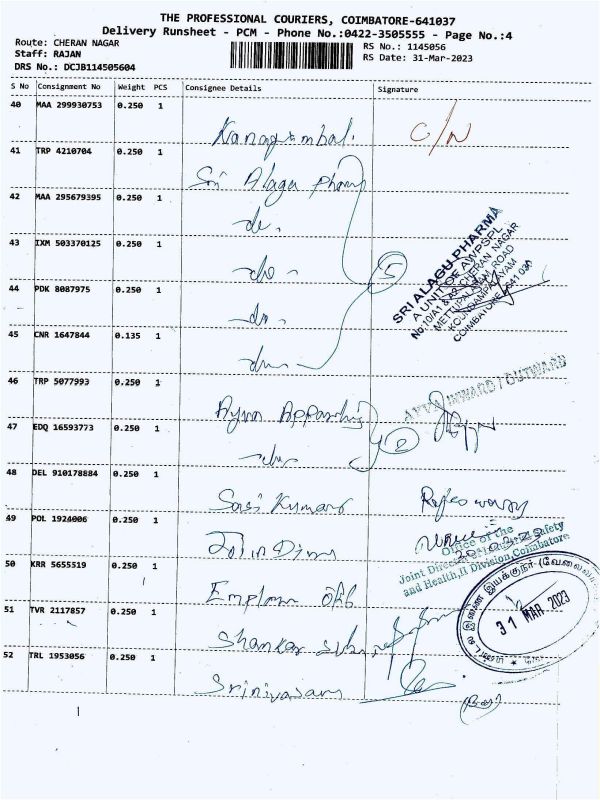 THE PROFESSIONAL COURIERS, COIMBATORE-641037
Delivery Runsheet - PCM - Phone No.:0422-3505555 - Page No.:4
Route: CHERAN NAGAR
RS No.: 1145056
Staff: RAJAN
RS Date: 31-Mar-2023
DRS No.: DCJB114505604
S No Consignment No Weight PCS Consignee Details Signature
40 MAA 299930753 0.250 1
Kanagambal. C/N
41 TRP 4210704 0.250 1
Sri Alagu Pharma
42 MAA 295679395 0.250 1
do.
43 IXM 503370125 0.250 1
do -
5
44 PDK 8087975 0.250 1
do.
45 CNR 1647844 0.135 1
do -
SRI ALAGU PHARMA
A UNIT OF AWPSPL
No:10/A1 & A2, CHERAN NAGAR
METTUPALAYAM ROAD
KOUNDAMPALAYAM
COIMBATORE - 641 030
46 TRP 5077993 0.250 1
INWARD / OUTWARD
47 EDQ 16593773 0.250 1
do
2
48 DEL 910178884 0.250 1
Sasi Kumar
49 POL 1924006 0.250 1
Join Dir
Office of the
Joint Director Safety
and Health,II Division,Coimbatore
50 KRR 5655519 0.250 1
31 MAR 2023
51 TVR 2117857 0.250 1
Shankar
52 TRL 1953056 0.250 1
Srinivasan